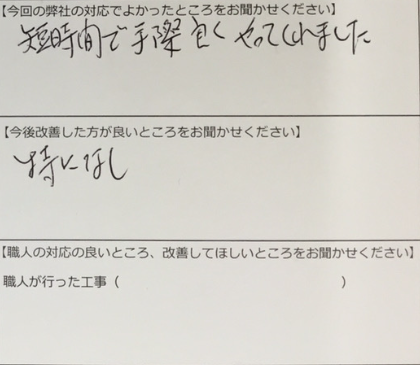 【今回の弊社の対応でよかったところをお聞かせください】
短時間で手際良くやってくれました
【今後改善した方が良いところをお聞かせください】
特になし
【職人の対応の良いところ、改善してほしいところをお聞かせください】
職人が行った工事（　　　　　　　　　　　　　　　　）